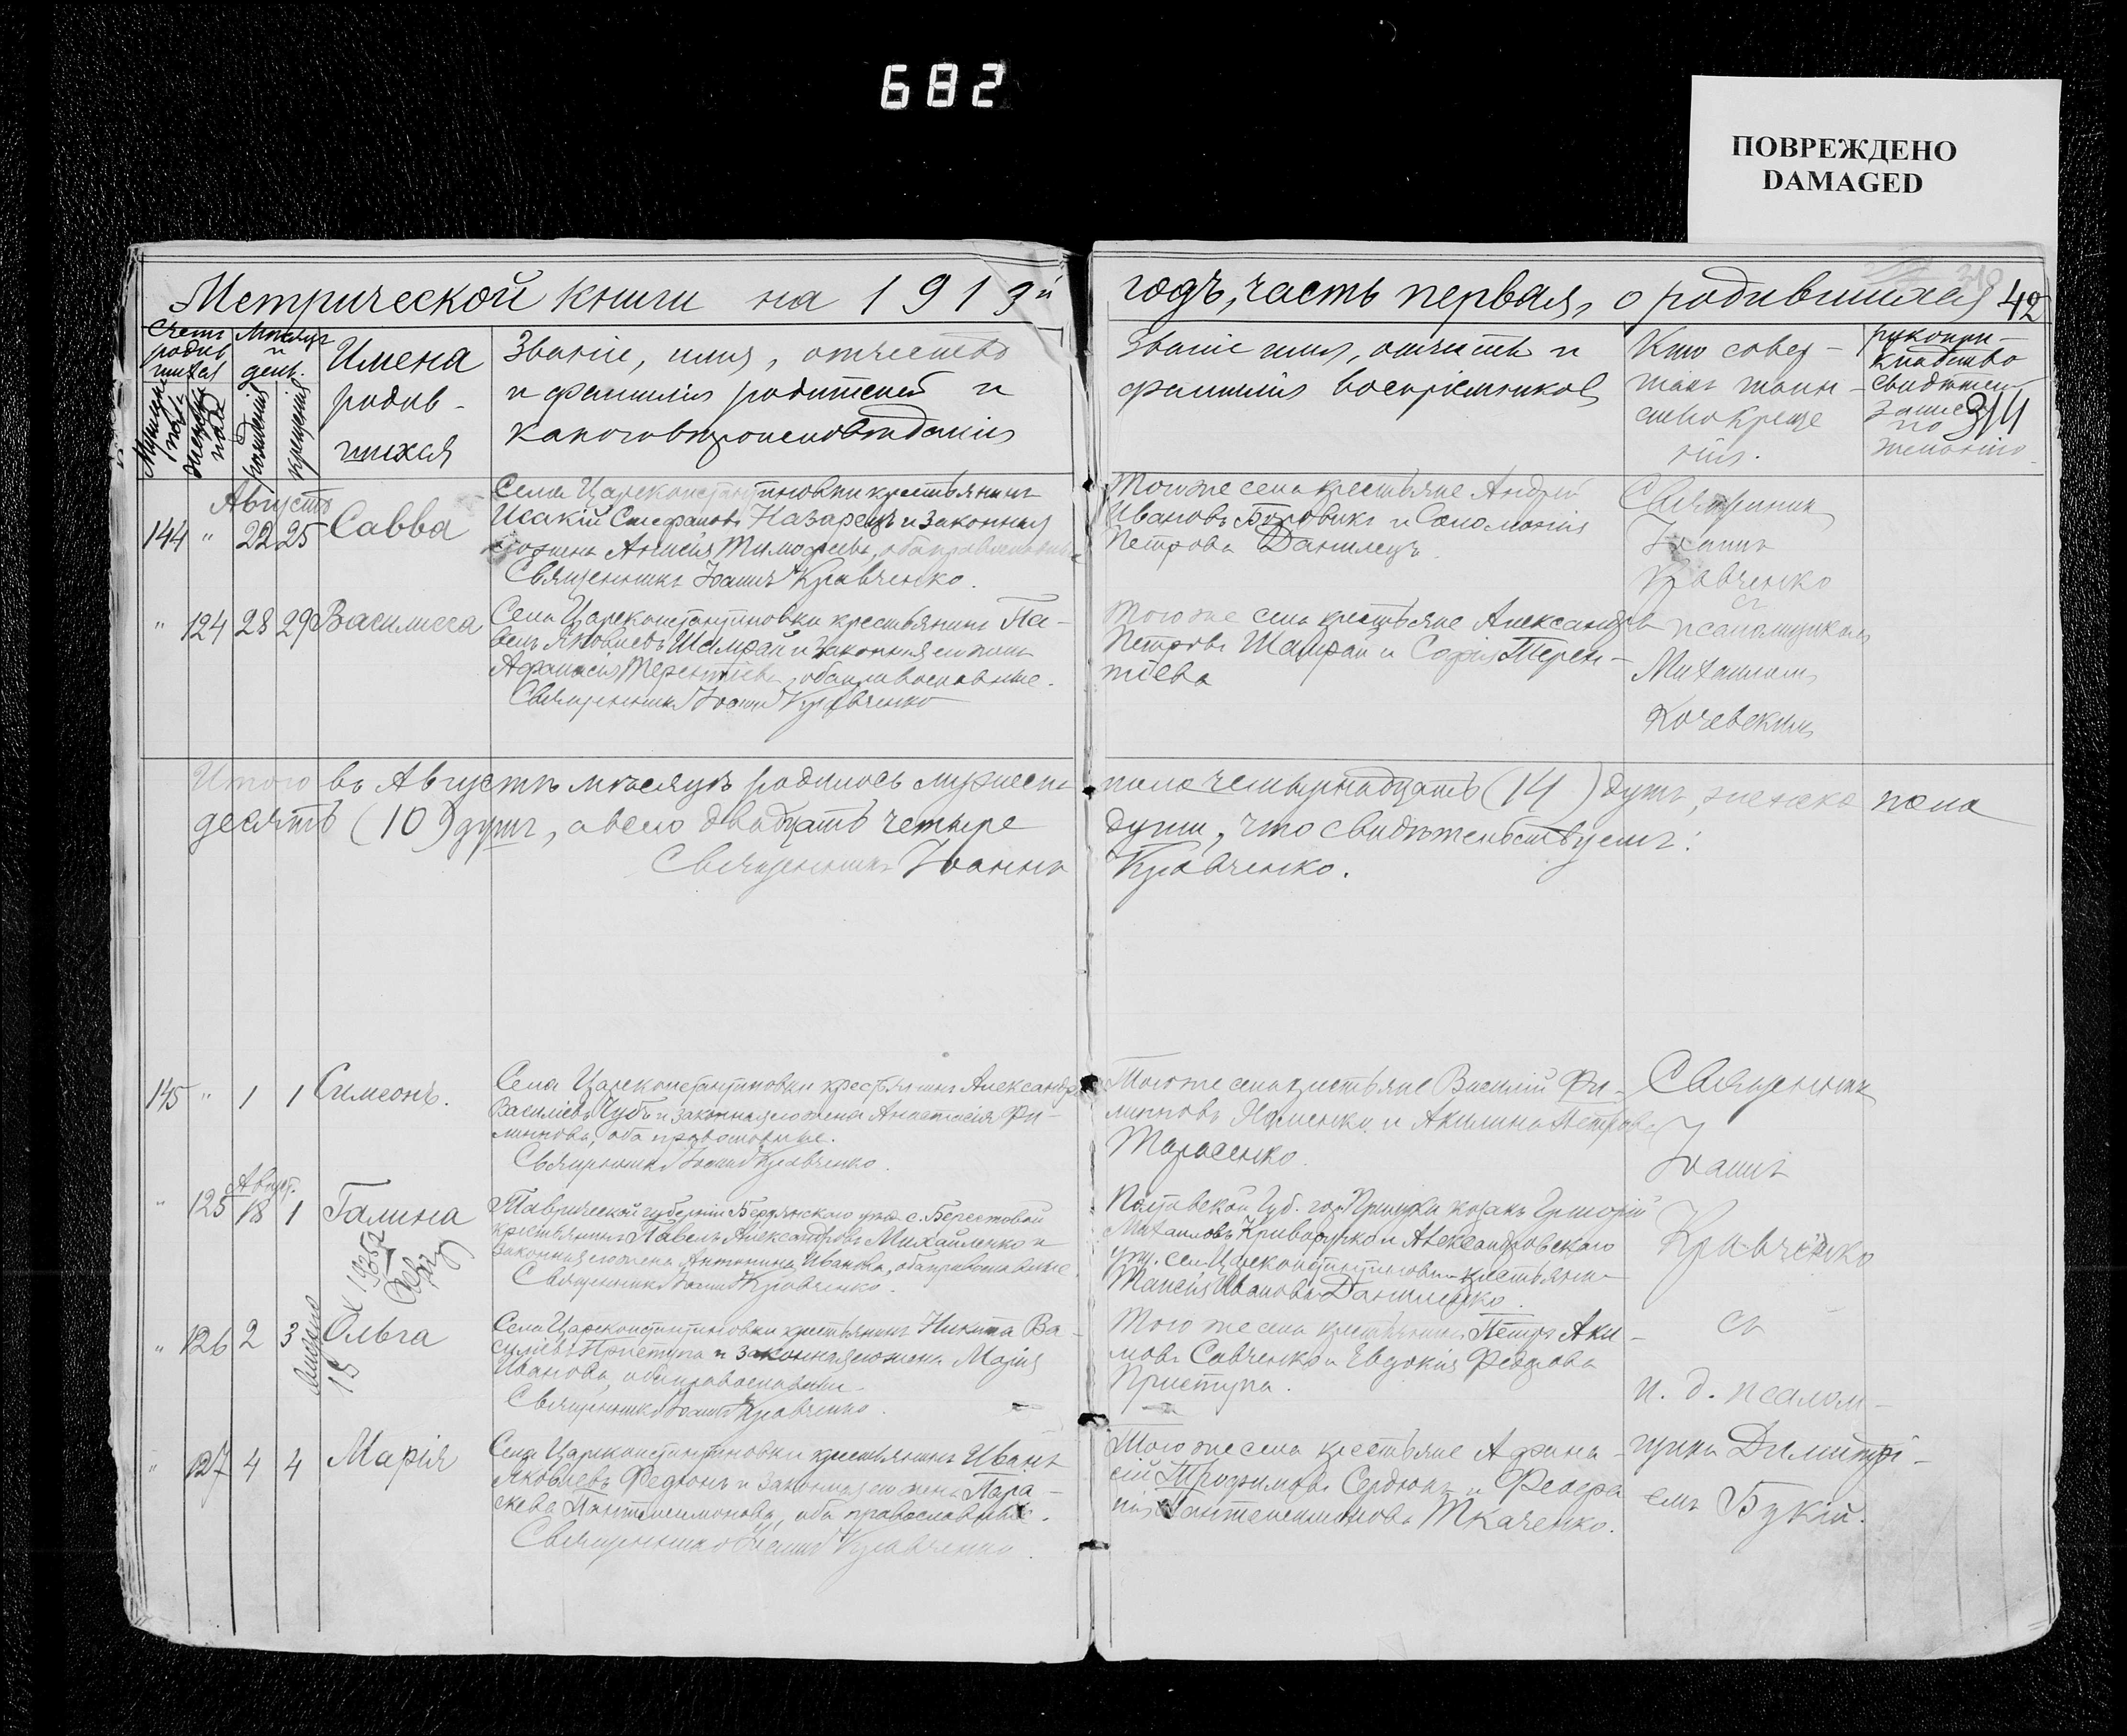 682
ПОВРЕЖДЕНО
DAMAGED
Метрической книги на 1913й
годъ, часть первая, о родившихся 42
Счетъ родившихся
Мѣсяцъ и день.
рожденія
крещенія
Имена
родив-
шихся
Званіе, имя, отчество
и фамилія родителей и
какого вѣроисповѣданія
Званіе имя, отчество и
фамилія воспріемниковъ
Кто совер-
шалъ таин-
ство креще
нія.
рукопри-
кладство
свидѣтелей
записи
по
желанію
314
Августъ
144 " 22 25 Савва
Села Цареконстантиновки крестьянинъ
Исакій Стефановъ Назарецъ и законная
жена Анисія Тимофеева, оба православные
Священникъ Іоаннъ Кравченко.
Того же села крестьяне Андрей
Ивановъ Боровикъ и Соломонія
Петрова Данилецъ.
Священникъ
Іоаннъ
Кравченко
съ
псаломщикомъ
Михаиломъ
Кочевскимъ
" 124 28 29 Василисса
Села Цареконстантиновки крестьянинъ Па-
велъ Яковлевъ Шамрай и законная его жена
Афанасія Терентіева, оба православные.
Священникъ Іоаннъ Кравченко
Того же села крестьяне Александръ
Петровъ Шамрай и Софія Терен-
тіева
Итого въ Августѣ мѣсяцѣ родилось мужеска
пола четырнадцать (14) душъ, женска пола
десять (10) душъ, а всего двадцать четыре
души, что свидѣтельствуемъ:
Священникъ Іоаннъ Кравченко.
145 " 1 1 Симеонъ.
Села Цареконстантиновки крестьянинъ Александръ
Василіевъ Чубъ и законная его жена Анастасія Фи-
липпова, оба православные.
Священникъ Іоаннъ Кравченко.
Того же села крестьяне Василій Фи-
липповъ и Акилина Петрова
Тарасенко.
Священникъ
Іоаннъ
Кравченко
съ
и. д. псалом-
щика Димитрі-
емъ Буткій.
Август.
" 125 18 1 Галина
Таврической губерніи Бердянскаго уѣзд. с. Берестовой
крестьянинъ Павелъ Александровъ Михайленко и
законная его жена Антонина Иванова, оба православные.
Священникъ Іоаннъ Кравченко.
Полтавской Губ. гор. Прилуки козакъ Григорій
Михаиловъ Криворучко и Александровскаго
уѣз. села Цареконстантиновки крестьянка
Иванова Данильченко.
" 126 2 3 Ольга
15
Села Цареконстантиновки крестьянинъ Никита Ва-
силіевъ Приступа и законная его жена Марія
Иванова, оба православные
Священникъ Іоаннъ Кравченко.
Того же села крестьянинъ Петръ Аки-
мовъ Савченко и Евдокія Федорова
Приступа.
" 127 4 4 Марія
Села Цареконстантиновки крестьянинъ Иванъ
Яковлевъ Федюнъ и законная его жена Пара-
скева Пантелеимонова, оба православные.
Священникъ Іоаннъ Кравченко.
Того же села крестьяне Афана-
сій Трофимовъ Сердюкъ и
Пантелеимонова Ткаченко.